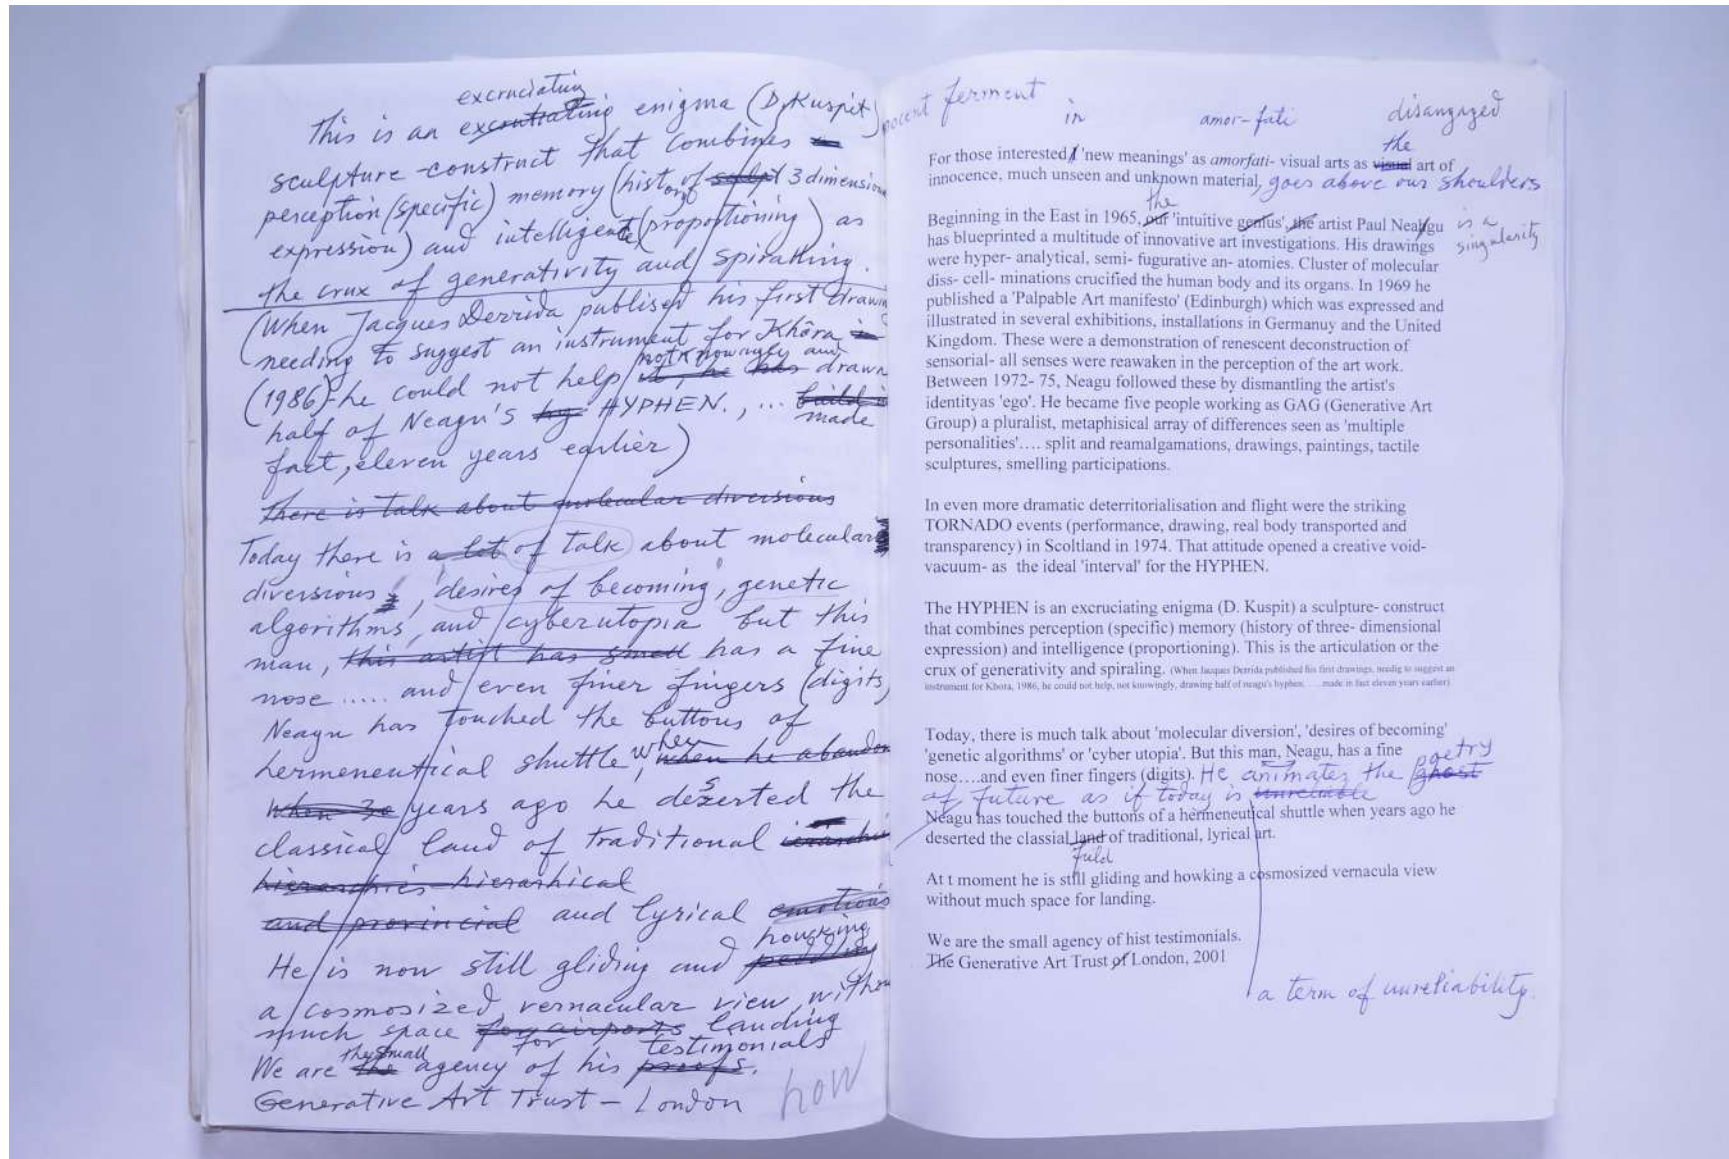 excruciating
This is an excrutiating enigma (D, Kuspit)
sculpture-construct that combines
perception (specific) memory (history of sculpt 3 dimension
expression) and intelligence (proportioning) as
the crux of generativity and spiralling.
(When Jacques Derrida publised his first drawin
needing to suggest an instrument for Khôra
not knowingly and
(1986)-he could not help it, he has drawn
half of Neagu's hy HYPHEN., ... build in
made
fact, eleven years earlier)
there is talk about molecular diversions
Today there is a lot of talk about molecular
diversions, 'desires of becoming', genetic
algorithms, and cyberutopia but this
man, this artist has small has a fine
nose ..... and even finer fingers (digits)
Neagu has touched the buttons of
when
hermeneutical shuttle, when he abandon
When 30 years ago he deserted the
classical land of traditional
hierarchies hierarhical
and provincial and lyrical emotions
howking
He is now still gliding and
a cosmosized, vernacular view, witho
much space for airports landing
for testimonials
the small
We are the agency of his proofs.
Generative Art Trust – London
how
ferment in amor-fati disangaged
the
For those interested 'new meanings' as amorfati- visual arts as visual art of
innocence, much unseen and unknown material, goes above our shoulders
the
Beginning in the East in 1965, our 'intuitive genius', the artist Paul Neagu is a
singularity
has blueprinted a multitude of innovative art investigations. His drawings
were hyper- analytical, semi- fugurative an- atomies. Cluster of molecular
diss- cell- minations crucified the human body and its organs. In 1969 he
published a 'Palpable Art manifesto' (Edinburgh) which was expressed and
illustrated in several exhibitions, installations in Germanuy and the United
Kingdom. These were a demonstration of renescent deconstruction of
sensorial- all senses were reawaken in the perception of the art work.
Between 1972- 75, Neagu followed these by dismantling the artist's
identityas 'ego'. He became five people working as GAG (Generative Art
Group) a pluralist, metaphisical array of differences seen as 'multiple
personalities'…. split and reamalgamations, drawings, paintings, tactile
sculptures, smelling participations.
In even more dramatic deterritorialisation and flight were the striking
TORNADO events (performance, drawing, real body transported and
transparency) in Scoltland in 1974. That attitude opened a creative void-
vacuum- as the ideal 'interval' for the HYPHEN.
The HYPHEN is an excruciating enigma (D. Kuspit) a sculpture- construct
that combines perception (specific) memory (history of three- dimensional
expression) and intelligence (proportioning). This is the articulation or the
crux of generativity and spiraling. (When Jacques Derrida published his first drawings, needig to suggest an
instrument for Khora, 1986, he could not help, not knowingly, drawing half of neagu's hyphen, ….made in fact eleven years earlier)
Today, there is much talk about 'molecular diversion', 'desires of becoming'
'genetic algorithms' or 'cyber utopia'. But this man, Neagu, has a fine
poetry
nose….and even finer fingers (digits). He animates the ghost
of future as if today is unreliable
Neagu has touched the buttons of a hermeneutical shuttle when years ago he
deserted the classial land of traditional, lyrical art.
At t moment he is still gliding and howking a cosmosized vernacula view
without much space for landing.
We are the small agency of hist testimonials.
The Generative Art Trust of London, 2001
a term of unreliability.